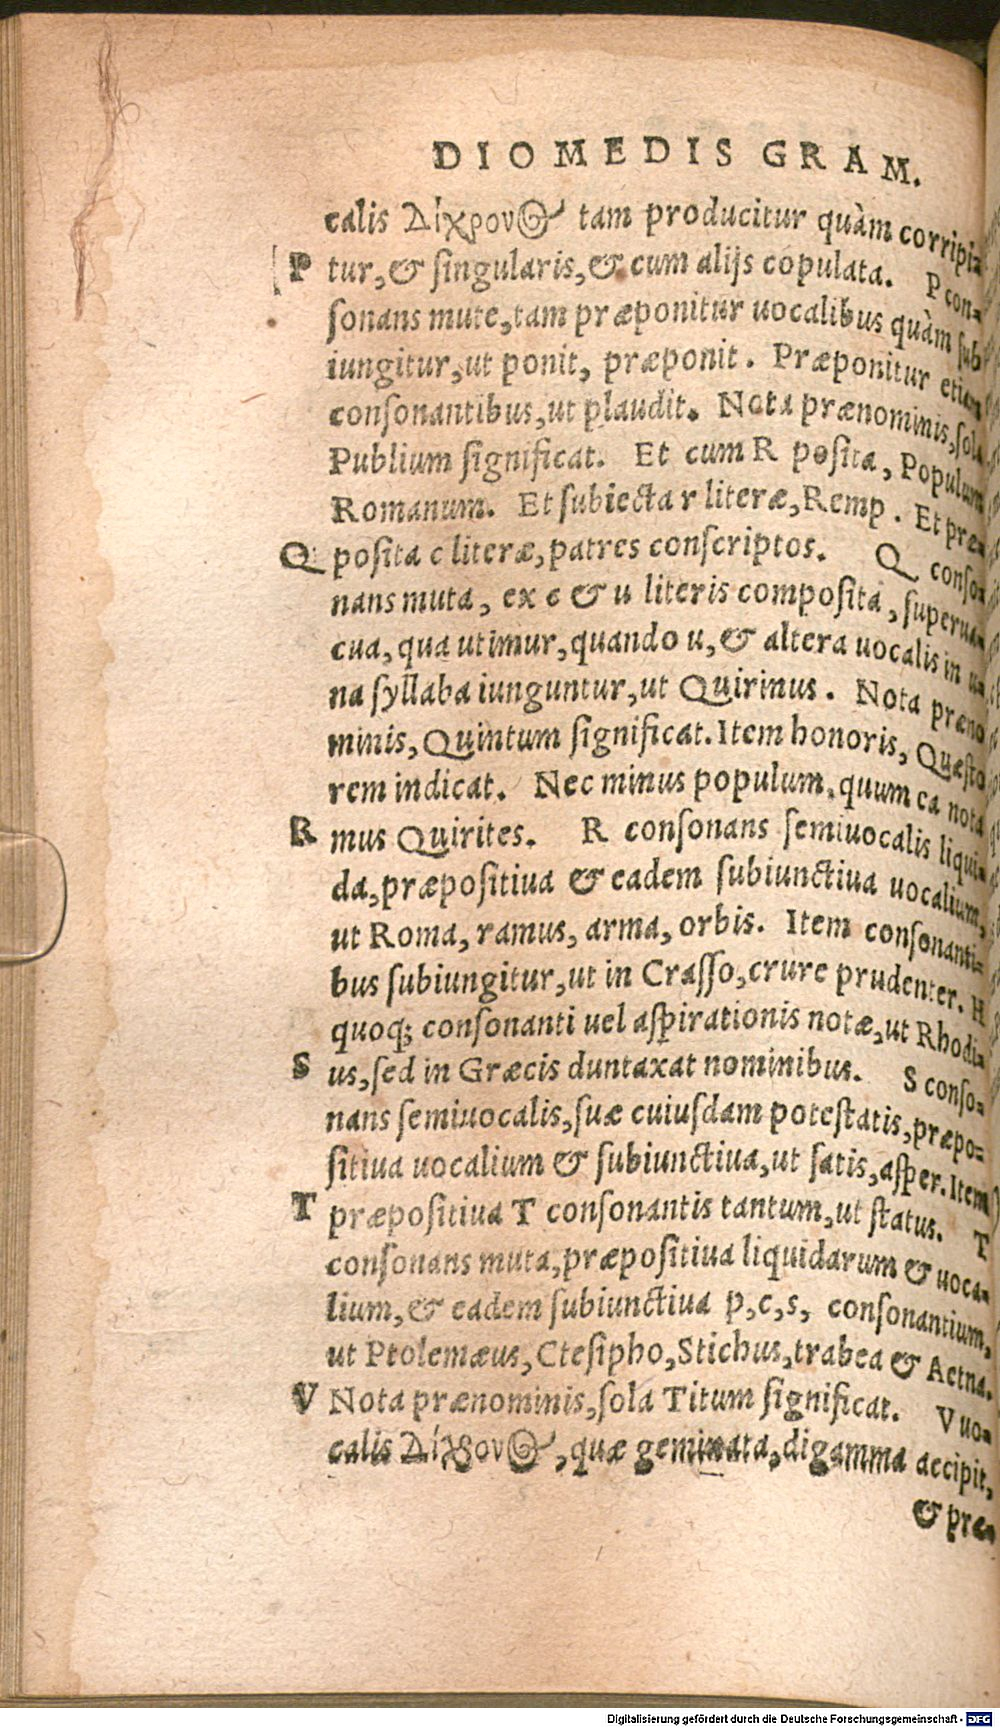 DIOMEDIS GRAM.
calis Δίχρονος tam producitur quàm corripi-
P tur, & singularis, & cum alijs copulata. P con-
sonans mute, tam præponitur uocalibus quàm sub
iungitur, ut ponit, præponit. Præponitur etiam
consonantibus, ut plaudit. Nota prænominis, sola
Publium significat. Et cum R posita, Populum
Romanum. Et subiecta r literæ, Remp. Et præ-
Q posita c literæ, patres conscriptos. Q conso-
nans muta, ex c & u literis composita, superua-
cua, qua utimur, quando u, & altera uocalis in u-
na syllaba iunguntur, ut Quirinus. Nota præno
minis, Quintum significat. Item honoris, Quæsto
rem indicat. Nec minus populum, quum ca nota
R mus Quirites. R consonans semiuocalis liqui-
da, præpositiua & eadem subiunctiua uocalium,
ut Roma, ramus, arma, orbis. Item consonanti-
bus subiungitur, ut in Crasso, crure prudenter. H
quoq; consonanti uel aspirationis notæ, ut Rhodi-
S us, sed in Græcis duntaxat nominibus. S conso-
nans semiuocalis, suæ cuiusdam potestatis, præpo-
sitiua uocalium & subiunctiua, ut satis, asper. Item
T præpositiua T consonantis tantum, ut status. T
consonans muta, præpositiua liquidarum & uoca-
lium, & eadem subiunctiua p, c, s, consonantium,
ut Ptolemæus, Ctesipho, Stichus, trabea & Aetna.
V Nota prænominis, sola Titum significat. V uo-
calis Δίχρονος, quæ geminata, digamma accipit,
& præ-
Digitalisierung gefördert durch die Deutsche Forschungsgemeinschaft - DFG